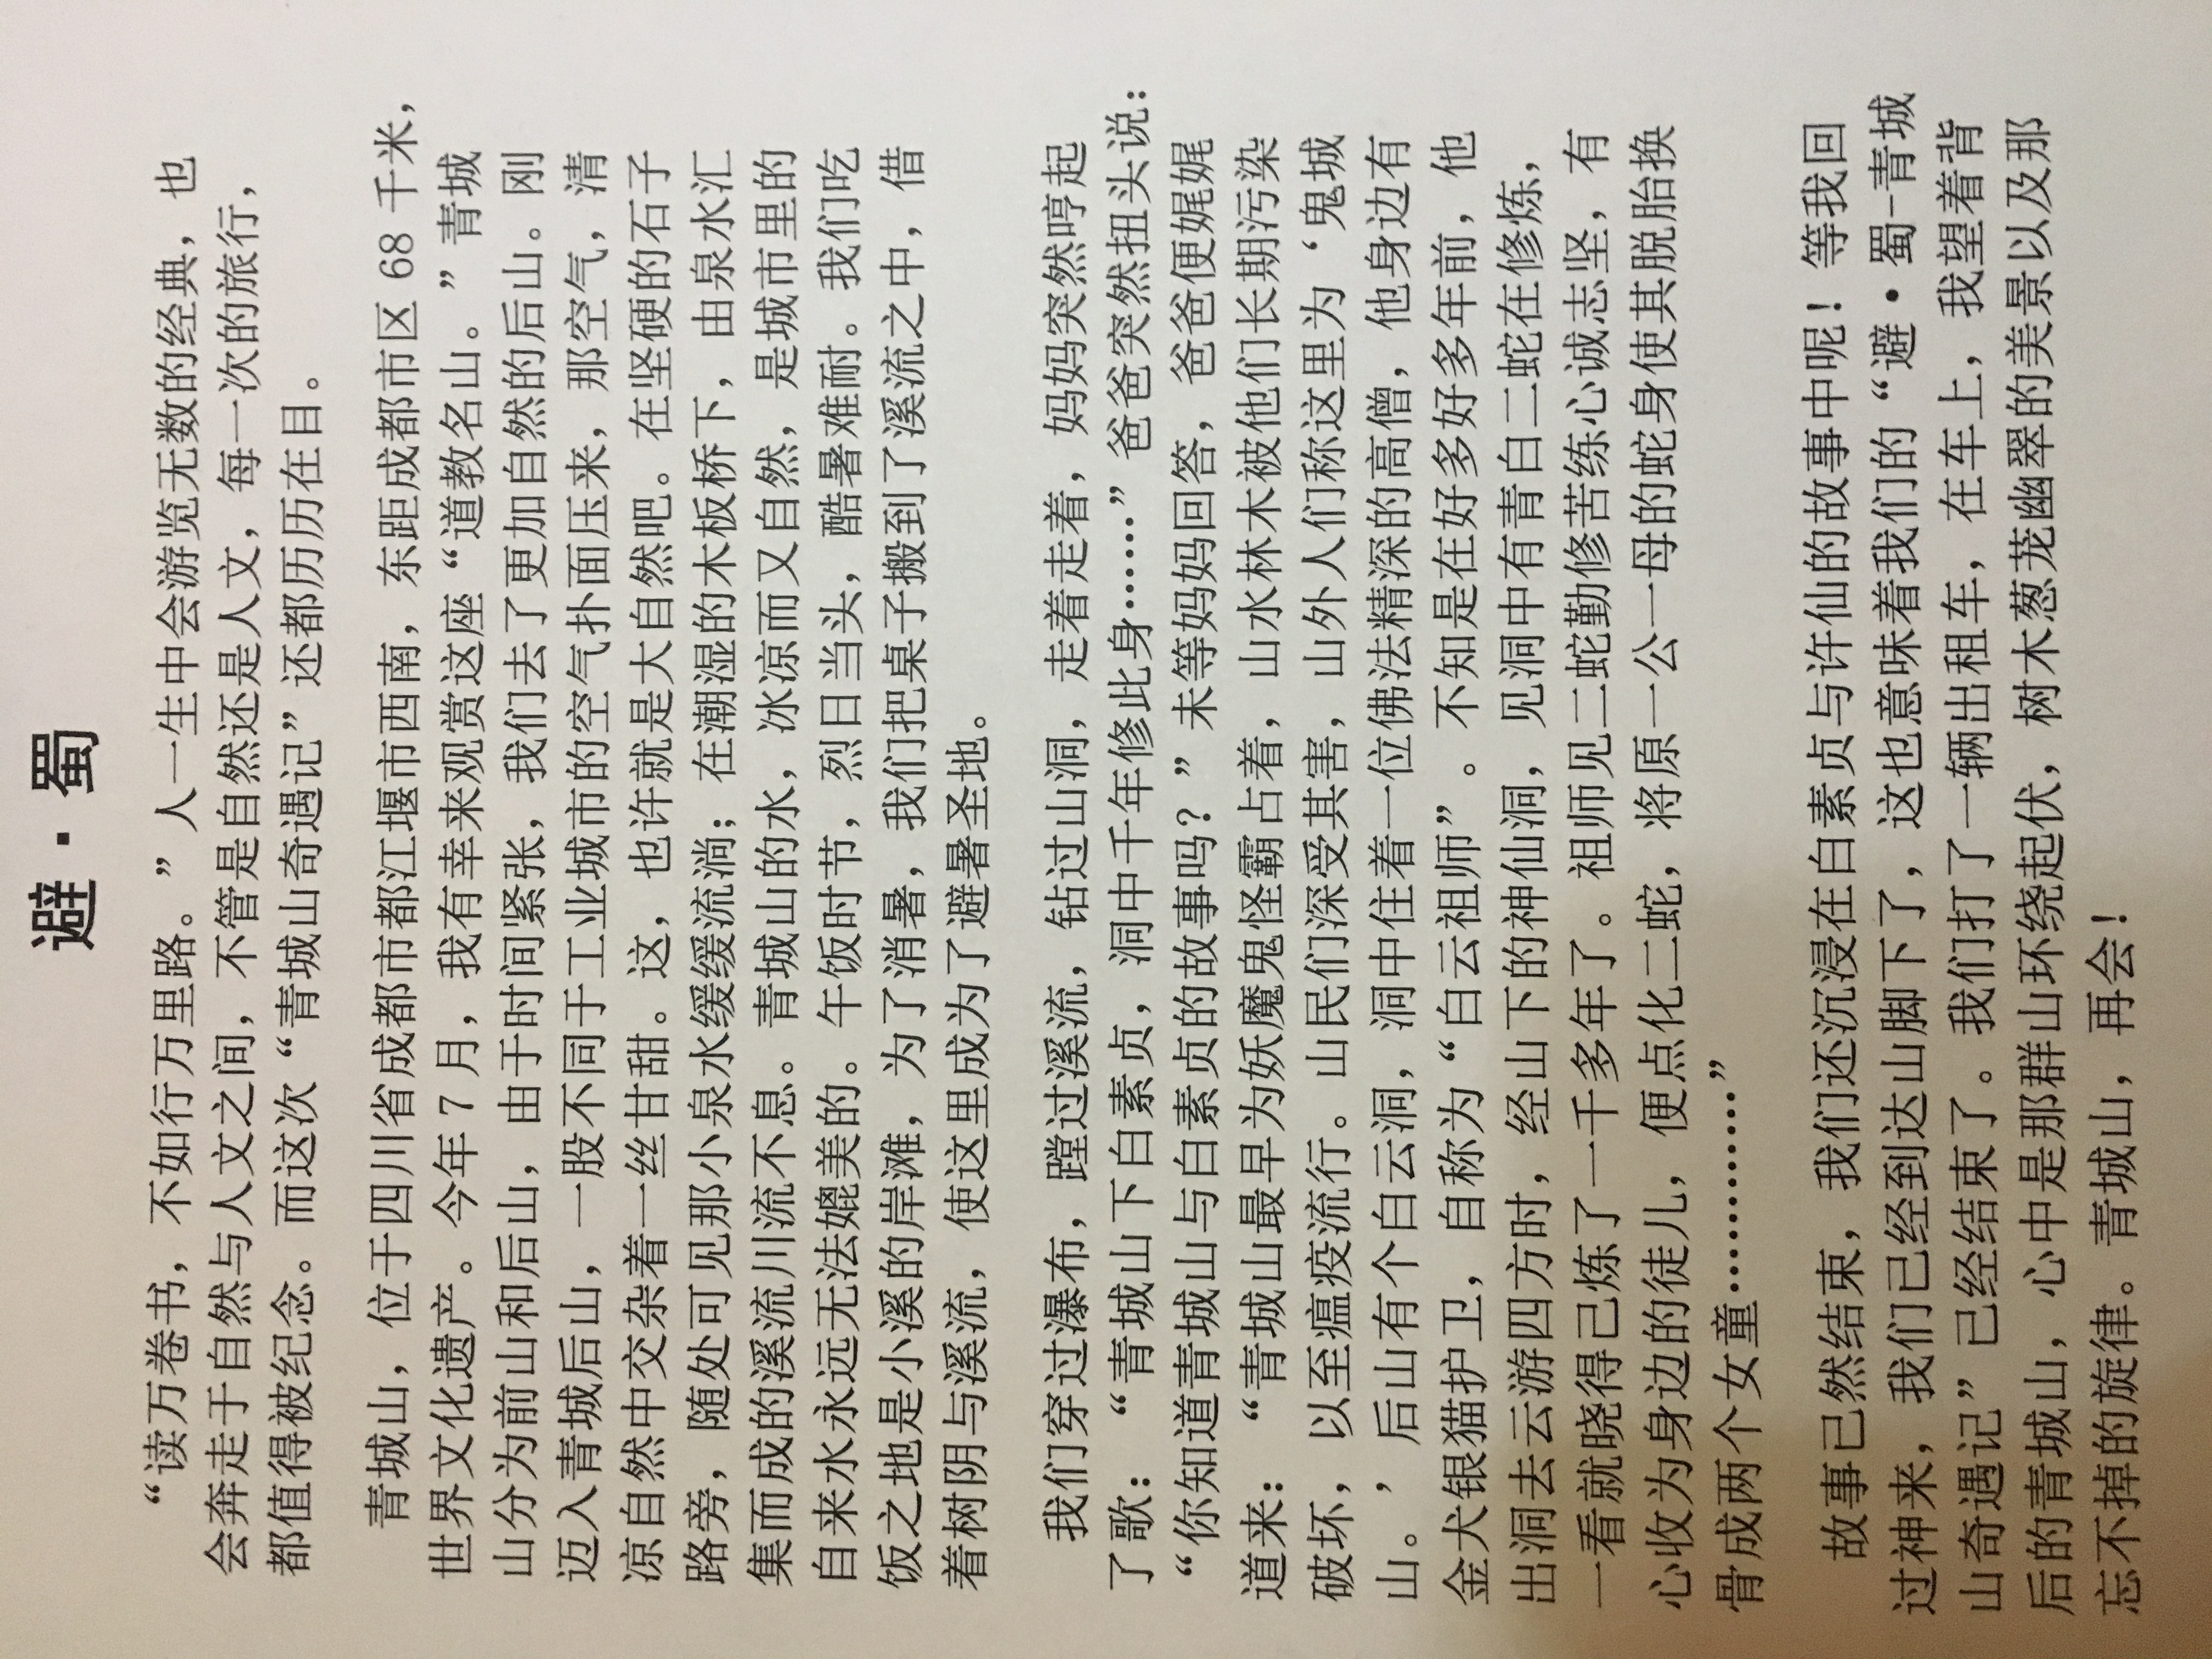 避·蜀
“读万卷书，不如行万里路。”人一生中会游览无数的经典，也
会奔走于自然与人文之间，不管是自然还是人文，每一次的旅行，
都值得被纪念。而这次“青城山奇遇记”还都历历在目。
青城山，位于四川省成都市都江堰市西南，东距成都市区 68 千米，
世界文化遗产。今年 7 月，我有幸来观赏这座“道教名山。”青城
山分为前山和后山，由于时间紧张，我们去了更加自然的后山。刚
迈入青城后山，一股不同于工业城市的空气扑面压来，那空气，清
凉自然中交杂着一丝甘甜。这，也许就是大自然吧。在坚硬的石子
路旁，随处可见那小泉水缓缓流淌；在潮湿的木板桥下，由泉水汇
集而成的溪流川流不息。青城山的水，冰凉而又自然，是城市里的
自来水永远无法媲美的。午饭时节，烈日当头，酷暑难耐。我们吃
饭之地是小溪的岸滩，为了消暑，我们把桌子搬到了溪流之中，借
着树阴与溪流，使这里成为了避暑圣地。
我们穿过瀑布，蹚过溪流，钻过山洞，走着走着，妈妈突然哼起
了歌：“青城山下白素贞，洞中千年修此身……”爸爸突然扭头说：
“你知道青城山与白素贞的故事吗？”未等妈妈回答，爸爸便娓娓
道来：“青城山最早为妖魔鬼怪霸占着，山水林木被他们长期污染
破坏，以至瘟疫流行。山民们深受其害，山外人们称这里为‘鬼城
山。，后山有个白云洞，洞中住着一位佛法精深的高僧，他身边有
金犬银猫护卫，自称为“白云祖师”。不知是在好多好多年前，他
出洞去云游四方时，经山下的神仙洞，见洞中有青白二蛇在修炼，
一看就晓得已炼了一千多年了。祖师见二蛇勤修苦练心诚志坚，有
心收为身边的徒儿，便点化二蛇，将原一公一母的蛇身使其脱胎换
骨成两个女童…………”
故事已然结束，我们还沉浸在白素贞与许仙的故事中呢！等我回
过神来，我们已经到达山脚下了，这也意味着我们的“避·蜀—青城
山奇遇记”已经结束了。我们打了一辆出租车，在车上，我望着背
后的青城山，心中是那群山环绕起伏，树木葱茏幽翠的美景以及那
忘不掉的旋律。青城山，再会！